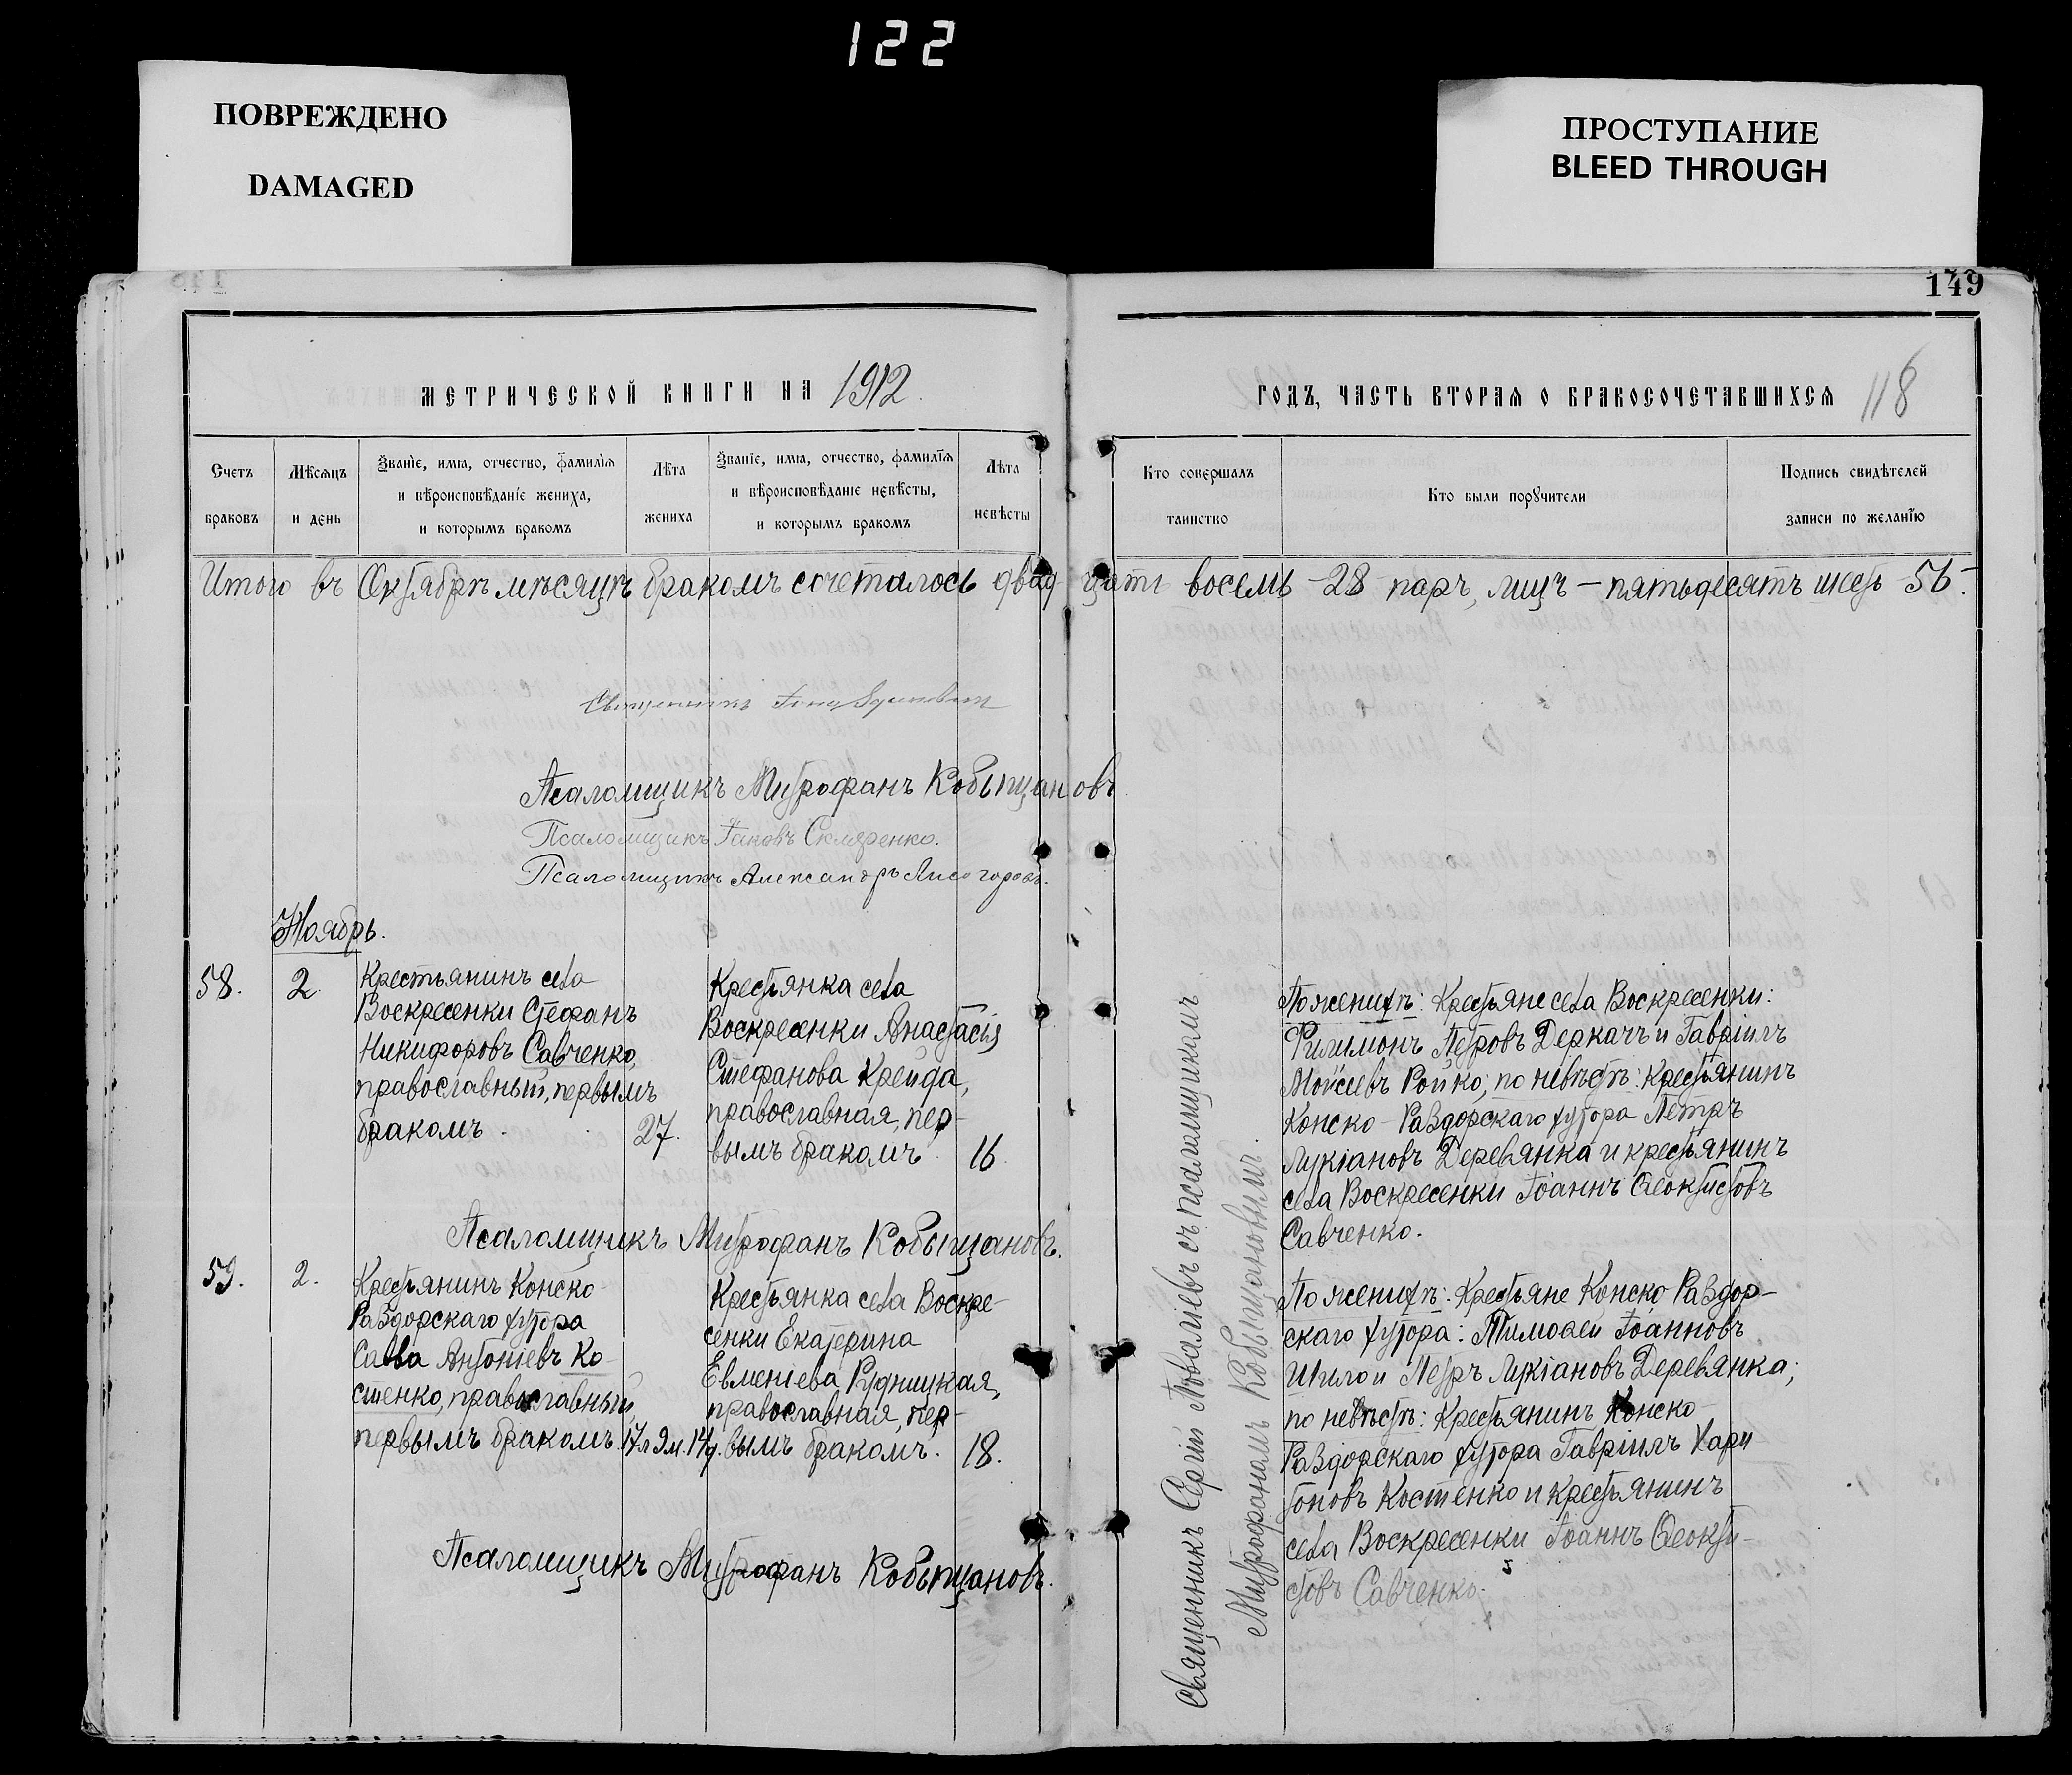 122
ПОВРЕЖДЕНО
DAMAGED
ПРОСТУПАНИЕ
BLEED THROUGH
149
МЕТРИЧЕСКОЙ КНИГИ НА 1912
ГОДЪ, ЧАСТЬ ВТОРАѦ О БРАКОСОЧЕТАВШИХСѦ 118
Счетъ
браковъ
Мѣсѧцъ
и день
Званїе, имѧ, отчество, фамилїѧ
и вѣроисповѣданїе жениха,
и которымъ бракомъ
Лѣта
жениха
Званїе, имѧ, отчество, фамилїѧ
и вѣроисповѣданїе невѣсты,
и которымъ бракомъ
Лѣта
невѣсты
Кто совершалъ
таинство
Кто были порꙋчители
Подпись свидѣтелей
записи по желанїю
Итого въ Октябрѣ мѣсяцѣ бракомъ сочеталось двадцать восемь -28 паръ, лицъ - пятьдесятъ шесть 56.
Священникъ
Псаломщикъ Митрофанъ Кобыщановъ
Псаломщикъ Іаковъ Скляренко.
Псаломщикъ Александръ Лисогоровъ.
Ноябрь.
58.
2
Крестьянинъ села
Воскресенки Стефанъ
Никифоровъ Савченко,
православный, первымъ
бракомъ.
27.
Крестьянка села
Воскресенки Анастасія
Стефанова Крейда,
православная, пер-
вымъ бракомъ.
16.
По женихѣ: Крестьяне села Воскресенки:
Филимонъ Петровъ Деркачъ и Гавріилъ
Моѵсеевъ Ройко; по невѣстѣ: Крестьянинъ
Конско-Раздорскаго хутора Петръ
Лукіановъ Деревянка и крестьянинъ
села Воскресенки Іоаннъ Ѳеоктистовъ
Савченко.
Псаломщикъ Митрофанъ Кобыщановъ.
59.
2.
Крестьянинъ Конско-
Раздорскаго хутора
Савва Антоніевъ Ко-
стенко, православный,
первымъ бракомъ.
17л 9м. 14д.
Крестьянка села Воскре-
сенки Екатерина
Евменіева Рудницкая,
православная, пер-
вымъ бракомъ.
18.
По женихѣ: Крестьяне Конско Раздор-
скаго хутора: Тимоѳей Іоанновъ
Шило и Петръ Лукіановъ Деревянка;
по невѣстѣ: Крестьянинъ Конско-
Раздорскаго хутора Гавріилъ Хари
тоновъ Костенко и крестьянинъ
села Воскресенки Іоаннъ Ѳеокти-
стовъ Савченко.
Псаломщикъ Митрофанъ Кобыщановъ.
Священникъ Сергій Поваліевъ съ псаломщикомъ
Митрофаномъ Кобыщановымъ.